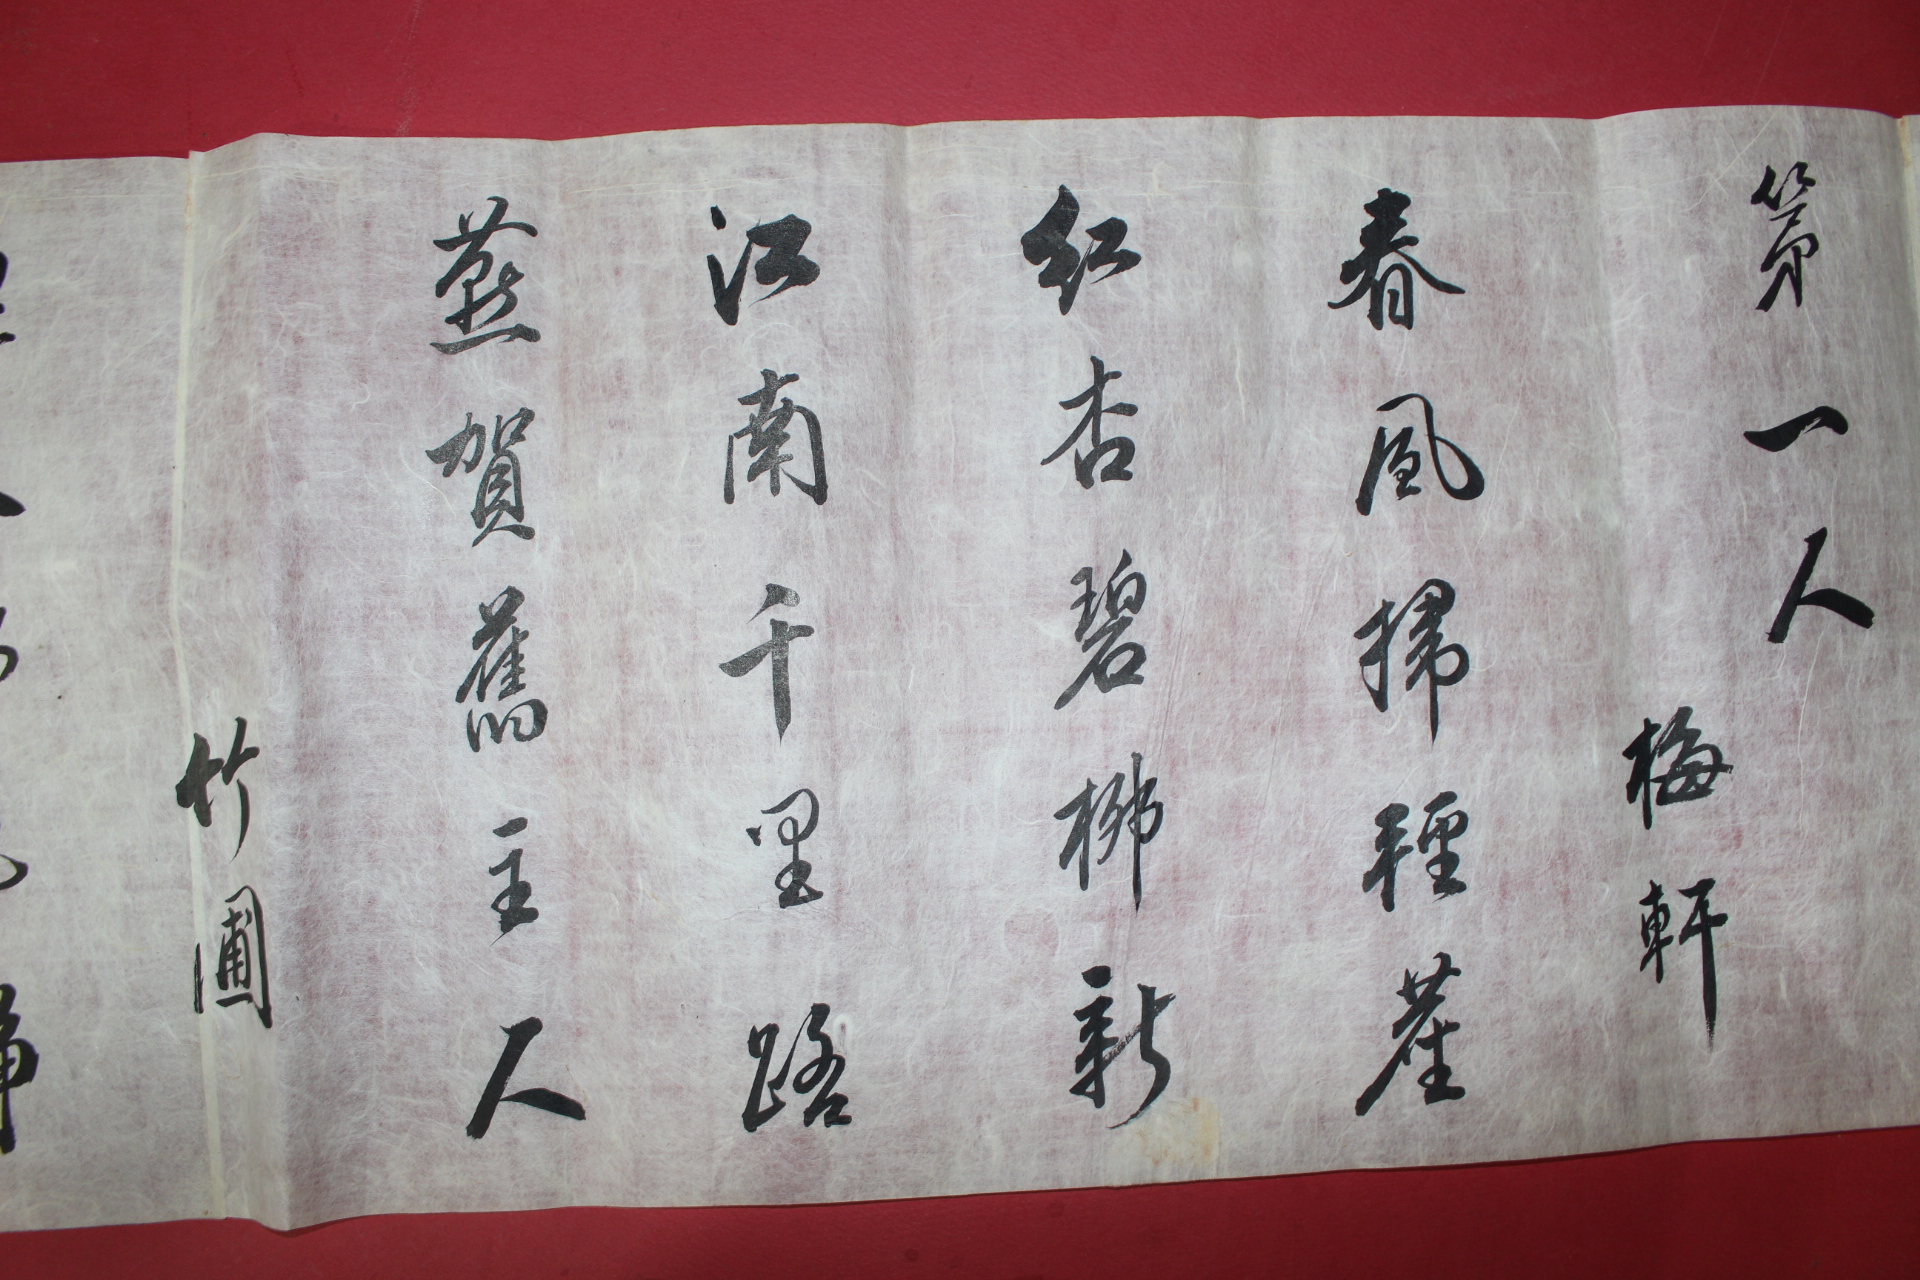 第一人
梅軒
春風掃種
紅杏碧柳新
江南千里路
燕賀舊主人
竹圃